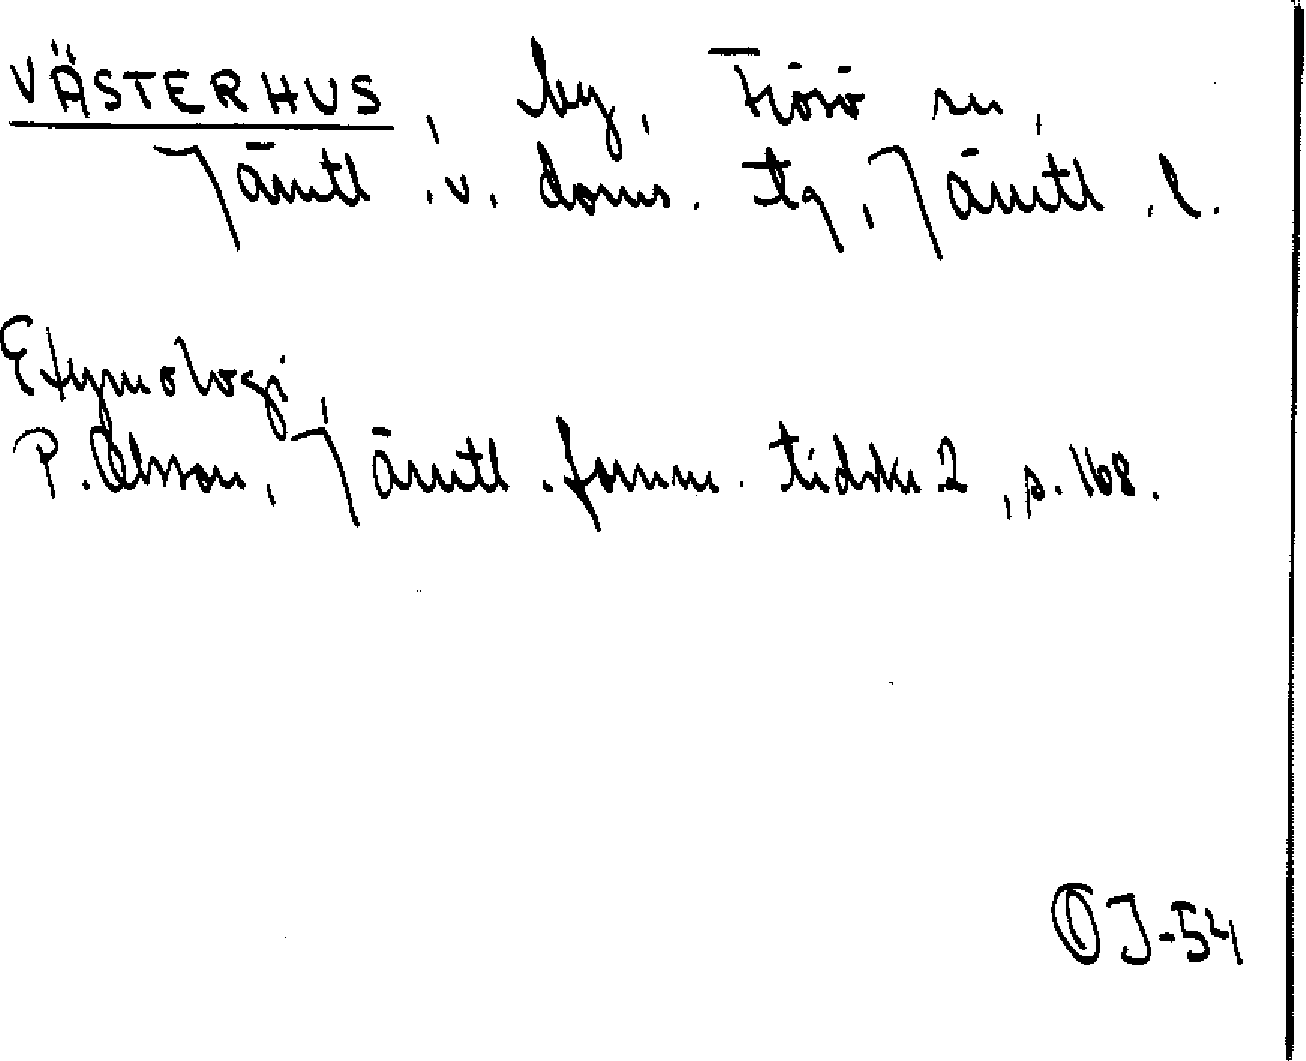 VÄSTERHUS, by, Frösö sn,
Jämtl. v. doms. tg, Jämtl. l.
Etymologi
P. Olsson, Jämtl. fornm. tidskr 2, s. 168.
OJ-54